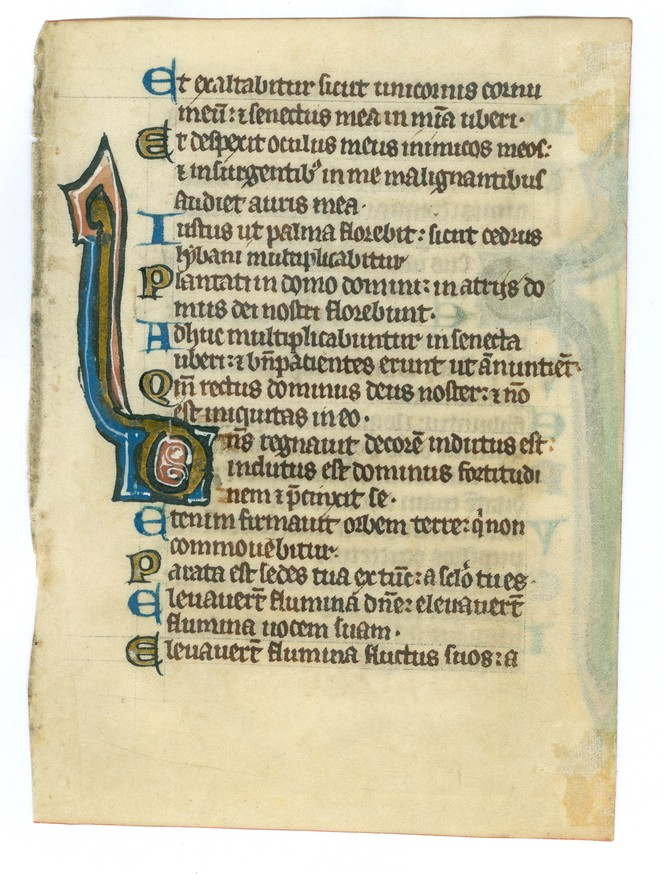 Et exaltabitur sicut unicornis cornu
meū: ⁊ senectus mea in mīa uberi.
Et despexit oculus meus inimicos meos:
⁊ insurgentibꝰ in me malignantibus
audiet auris mea.
Iustus ut palma florebit: sicut cedrus
lybani multiplicabitur
Plantati in domo domini: in atrijs do
mus dei nostri florebunt.
Adhuc multiplicabuntur in senecta
uberi: ⁊ bn̄ pacientes erunt ut ānuntiēt.
Qm̄ rectus dominus deus noster: ⁊ nō
est iniquitas in eo.
Dn̄s regnauit decorē indutus est:
indutus est dominus fortitudi
nem ⁊ p̄cinxit se.
Etenim firmauit orbem terre: q̇ non
commouebitur.
Parata est sedes tua ex tūc: a sclo᷒ tu es.
Eleuauer̄t flumina dn̄e: eleuauer̄t
flumina uocem suam.
Eleuauer̄t flumina fluctus suos: a